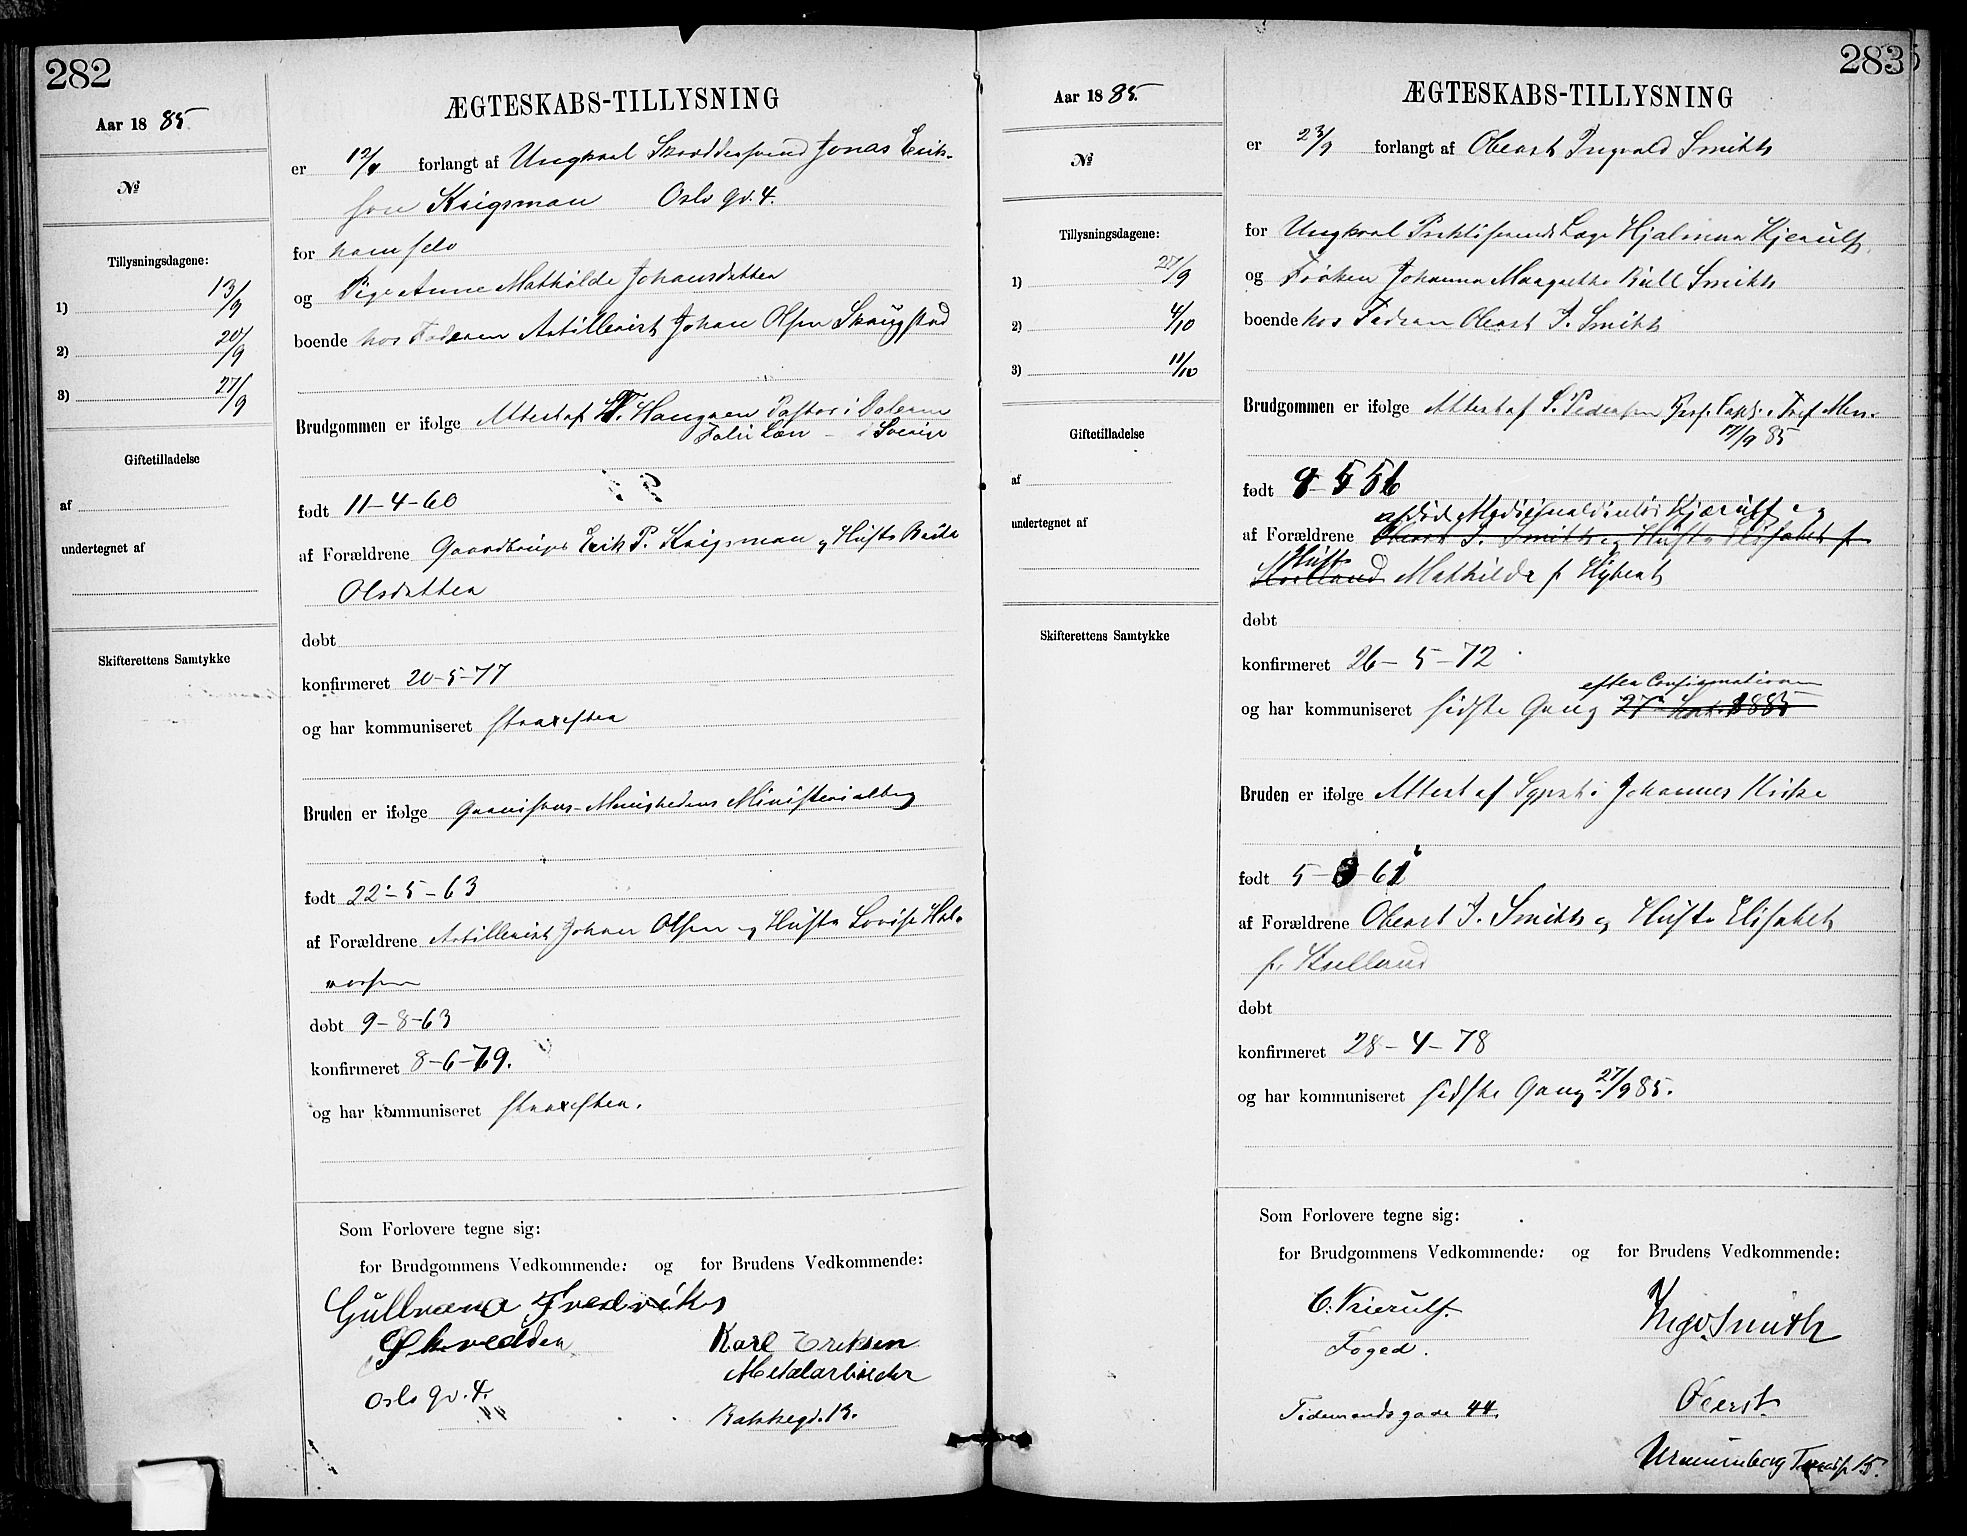 282
ÆGTESKABS-TILLYSNING
Aar 1885.
№
Tillysningsdagene:
1) 13/9
2) 20/9
3) 27/9
Giftetilladelse
af
undertegnet af
Skifterettens Samtykke
er 12/9 forlangt af Ungkarl Skræddersvend Jonas Erik-
son Krigsman Oslo gd. 4.
for ham selv
og Pige Anne Mathilde Johansdatter
boende hos Faderen Artillerist Johan Olsen Skaugstad
Brudgommen er ifølge Attest af Pastor i Dalerne
Falu Læn - i Sverige
født 11-4-60
af Forældrene Gaardbruger Erik P. Krigsman og Hustr
Olsdatter
døbt
konfirmeret 20-5-77
og har kommuniseret straxefter
Bruden er ifølge Garnisons-Menighedens Ministerialbog
født 22-5-63
af Forældrene Artillerist Johan Olsen og Hustr Lovise Hal-
vorsen
døbt 9-8-63
konfirmeret 8-6-79.
og har kommuniseret straxefter.
Som Forlovere tegne sig:
for Brudgommens Vedkommende: og for Brudens Vedkommende:
Karl Eriksen
Metalarbeider
Oslo gd. 4.
Bakkegd. 13.
283
ÆGTESKABS-TILLYSNING
Aar 1885.
№
Tillysningsdagene:
1) 27/9
2) 4/10
3) 11/10
Giftetilladelse
af
undertegnet af
Skifterettens Samtykke
er 23/9 forlangt af Oberst Ingvald Smith
for Ungkarl Praktiserende Læge Hjalmar Kjerulf,
og Frøken Johanna Margrethe Bull Smith
boende hos Faderen Oberst I. Smith
Brudgommen er ifølge Attest af S. Pedersen
17/9 85
født 9-5 56
afdød Kjerulf og
af Forældrene Oberst I. Smith og Hustr Elisabet f.
Hustr
Kielland Mathilde f.
døbt
konfirmeret 26-5-72
efter Confirmationen
og har kommuniseret sidste Gang 27 1885
Bruden er ifølge Attest af Sgpst i Johannes Kirke
født 5-8-61
af Forældrene Oberst I. Smith og Hustr Elisabet
f. Kielland
døbt
konfirmeret 28-4-78
og har kommuniseret sidste Gang 27/9 85.
Som Forlovere tegne sig:
for Brudgommens Vedkommende: og for Brudens Vedkommende:
C. Kierulf.
Foged.
Tidemandsgade 44.
Ingv. Smith
Oberst
15.